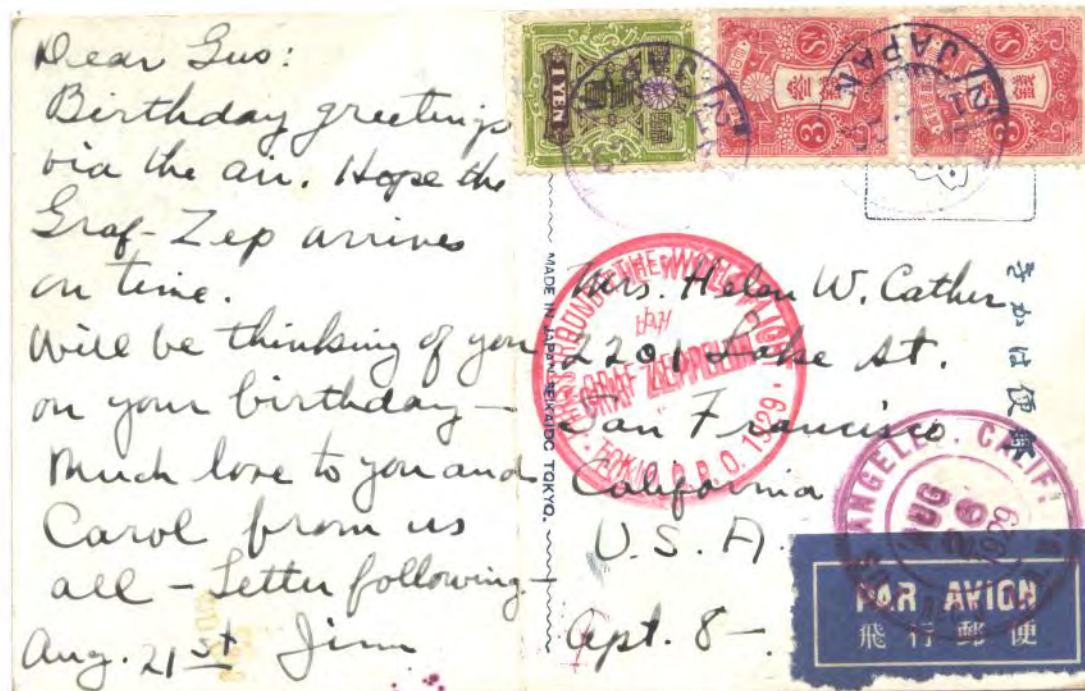 Dear Gus:
Birthday greetings
via the air. Hope the
Graf-Zep arrives
on time.
Will be thinking of you
on your birthday—
Much love to you and
Carol from us
all – Letter following—
Aug. 21st Jim
1 YEN
JAPAN
3 SN
JAPAN
3 SN
MADE IN JAPAN SEKAIDO TOKYO.
きかは便郵
FIRST ROUND-THE-WORLD FLIGHT
GRAF ZEPPELIN
TOKIO P.P.O. 1929
Mrs. Helen W. Cather
2201 Lake St.
San Francisco
California
U.S.A.
Apt. 8—
LOS ANGELES, CALIF.
AUG
1929
PAR AVION
飛行郵便